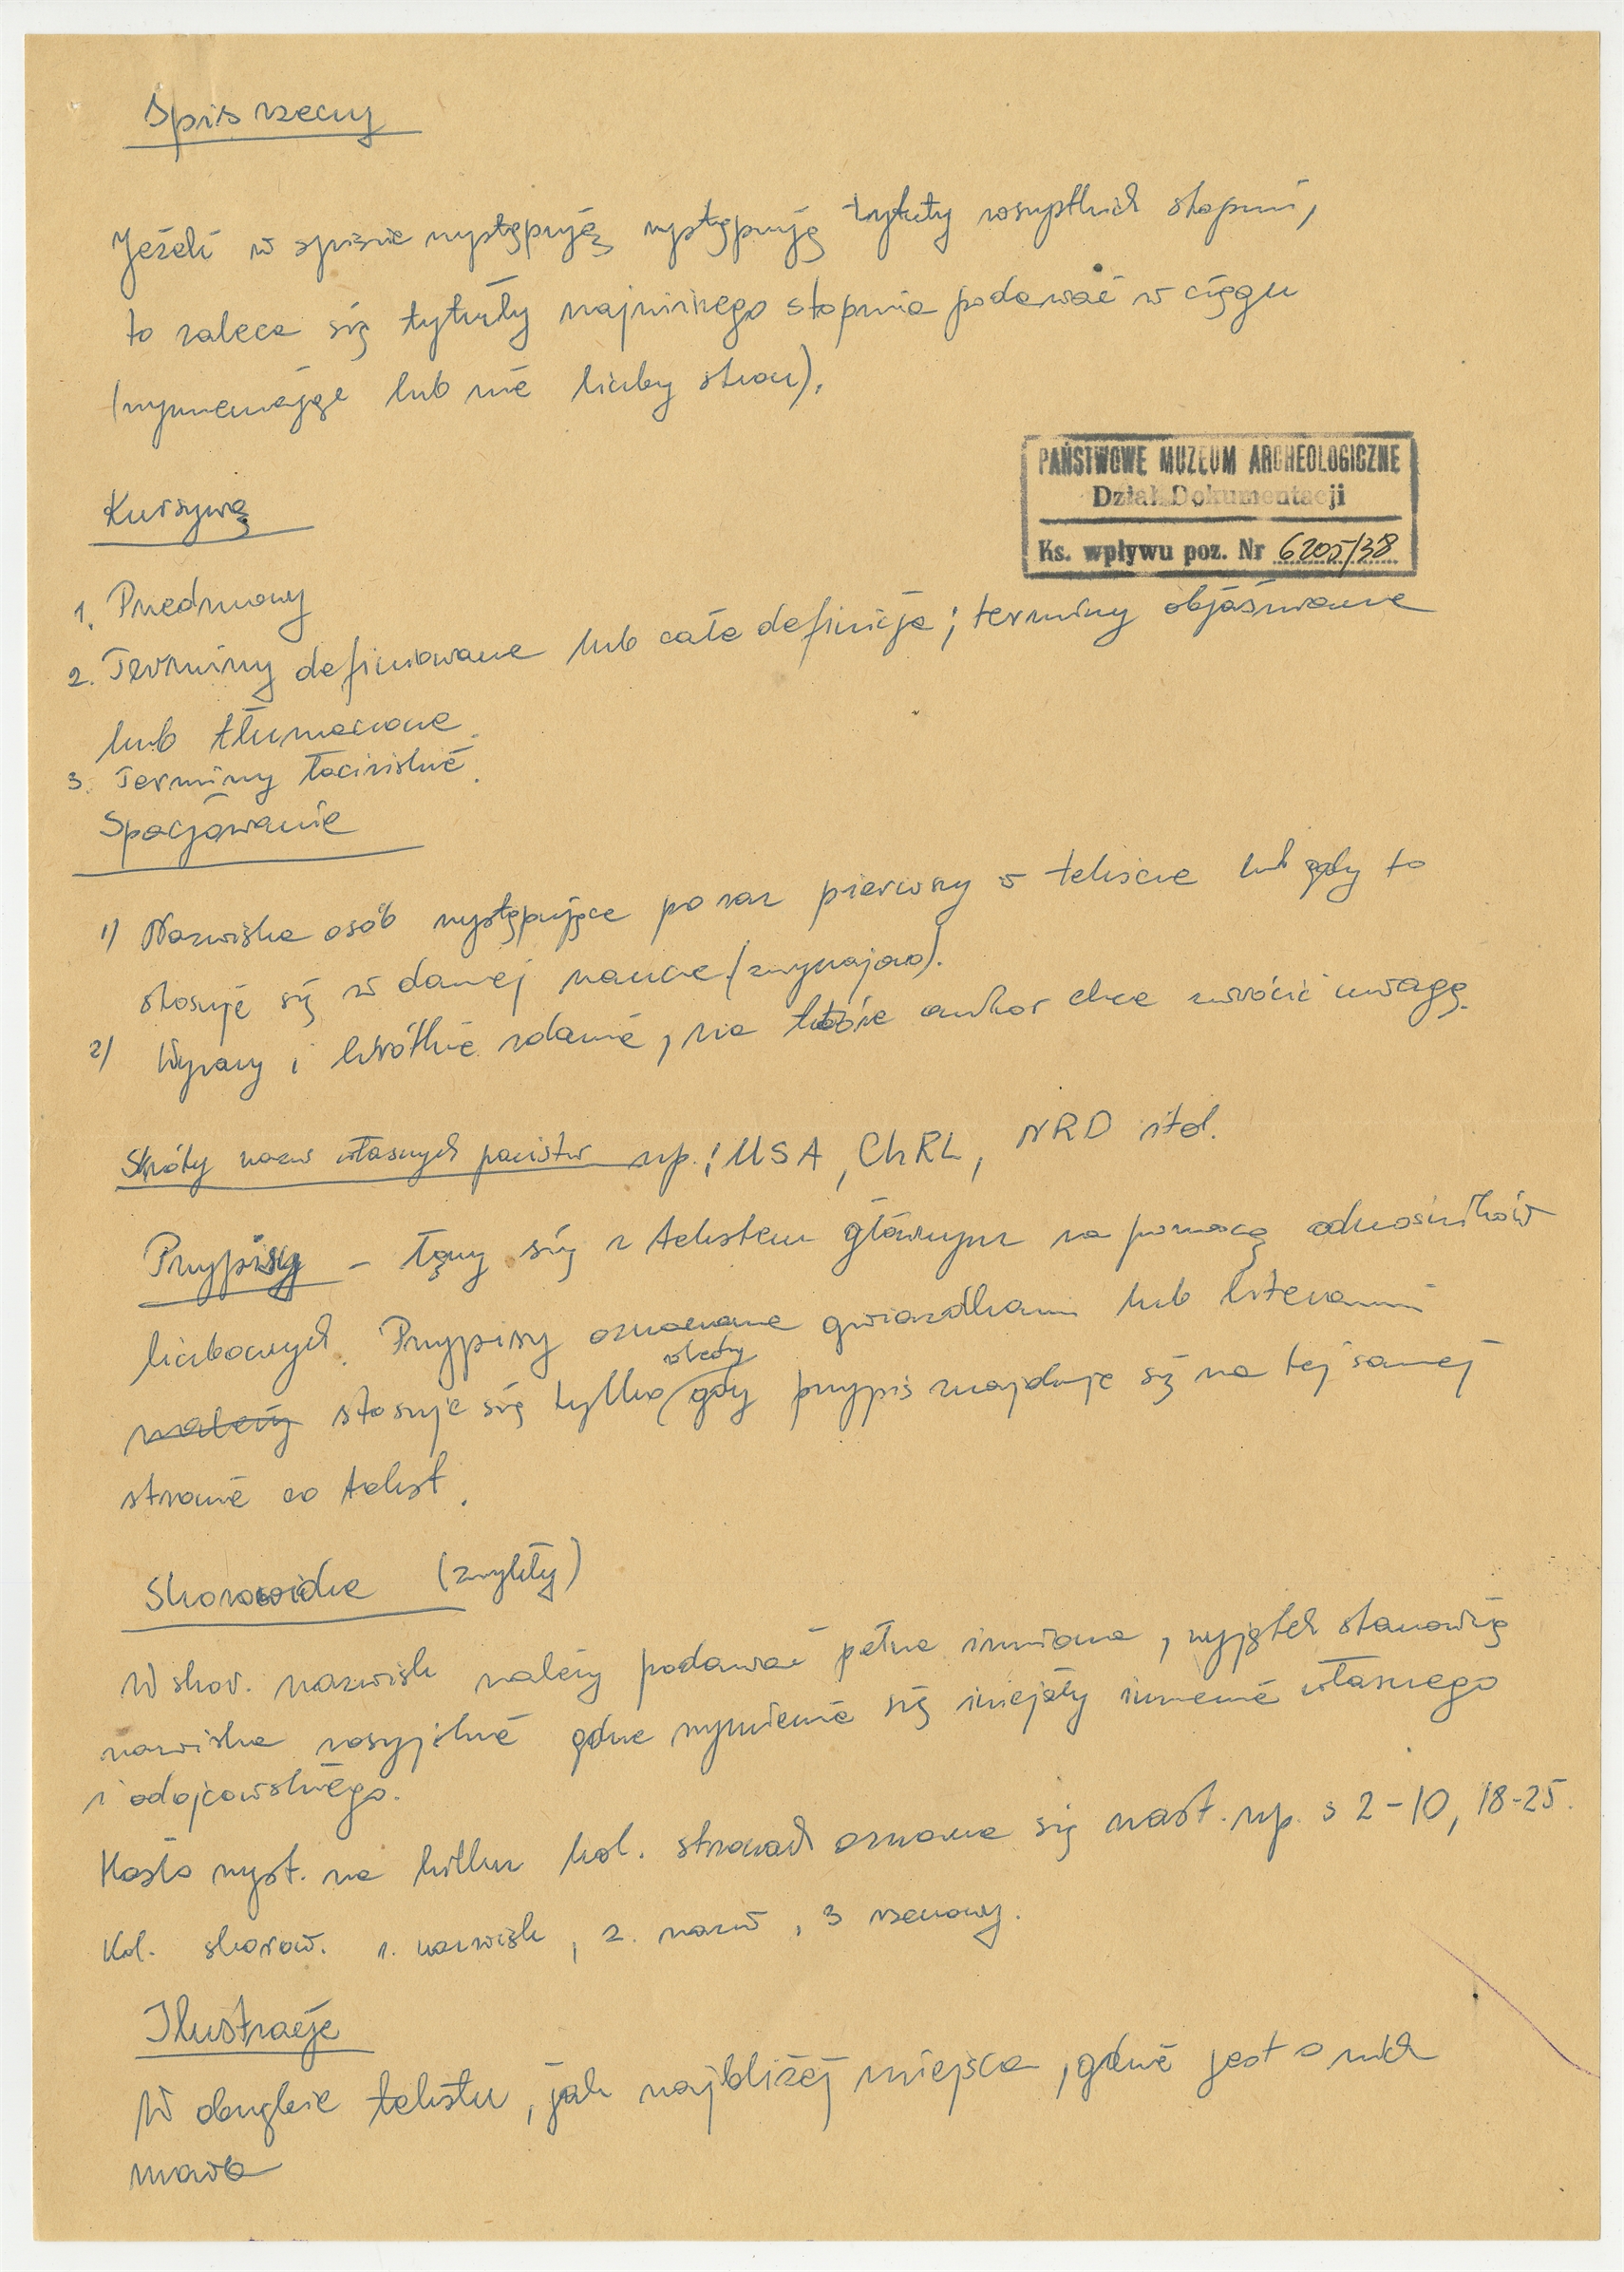 Spis rzeczy
Jeżeli w spisie występują występują tytuły wszystkich stopni,
to zaleca się tytuły najniższego stopnia podawać w ciągu
(wymieniając lub nie liczby stron).
PAŃSTWOWE MUZEUM ARCHEOLOGICZNE
Dział Dokumentacji
Ks. wpływu poz. Nr 6205/38
Kursywą
1. Przedmowy
2. Terminy definiowane lub całe definicje; terminy objaśniane
lub tłumaczone.
3. Terminy łacińskie.
Spacjowanie
1) Nazwiska osób występujące po raz pierwszy w tekście lub gdy to
stosuje się w danej nauce (zwyczajowo).
2) Wyrazy i krótkie zdanie, na które autor chce zwrócić uwagę.
Skróty nazw własnych państw np.: USA, ChRL, NRD itd.
Przypisy – łączy się z tekstem głównym za pomocą odnośników
liczbowych. Przypisy oznaczane gwiazdkami lub literami
wtedy
należy stosuje się tylko gdy przypis znajduje się na tej samej
stronie co tekst.
Skorowidze (zwykły)
W skor. nazwisk należy podawać pełne imiona, wyjątek stanowią
nazwiska rosyjskie gdzie wymienia się inicjały imienia własnego
i odojcowskiego.
Hasło wyst. na kilku kol. stronach oznacza się nast. np. s 2–10, 18-25.
Kol. skorow. 1. nazwisk, 2. nazw, 3 rzeczowy.
Ilustracje
W obrębie tekstu, jak najbliżej miejsca, gdzie jest o nich
mowa